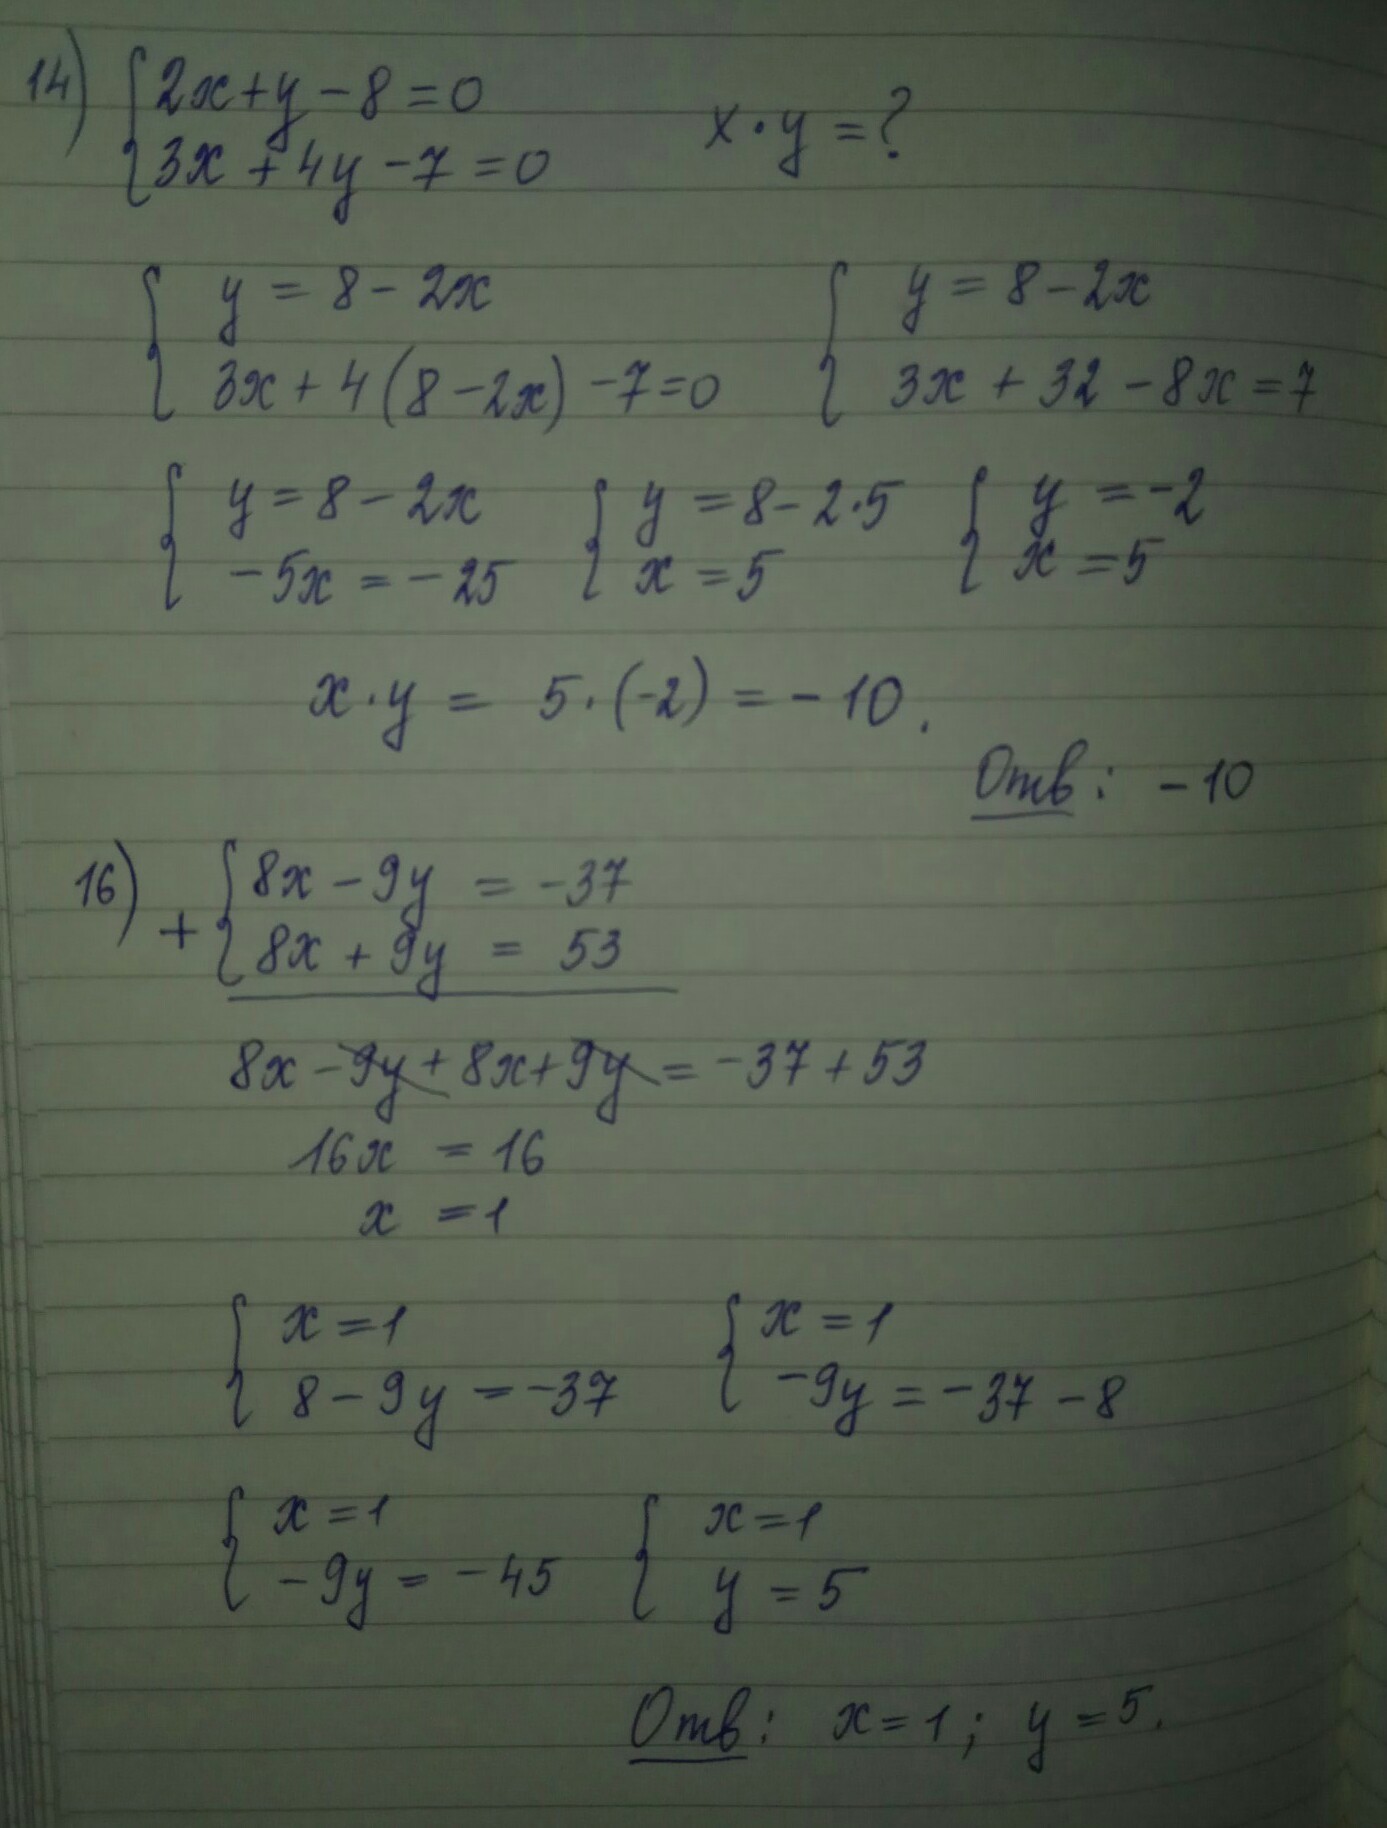 14) { 2x + y - 8 = 0
3x + 4y - 7 = 0
x · y = ?
{ y = 8 - 2x { y = 8 - 2x
3x + 4(8 - 2x) - 7 = 0 3x + 32 - 8x = 7
{ y = 8 - 2x { y = 8 - 2·5 { y = -2
-5x = -25 x = 5 x = 5
x · y = 5 · (-2) = -10.
Отв: -10
16) + { 8x - 9y = -37
8x + 9y = 53
8x - 9y + 8x + 9y = -37 + 53
16x = 16
x = 1
{ x = 1 { x = 1
8 - 9y = -37 -9y = -37 - 8
{ x = 1 { x = 1
-9y = -45 y = 5
Отв: x = 1; y = 5.